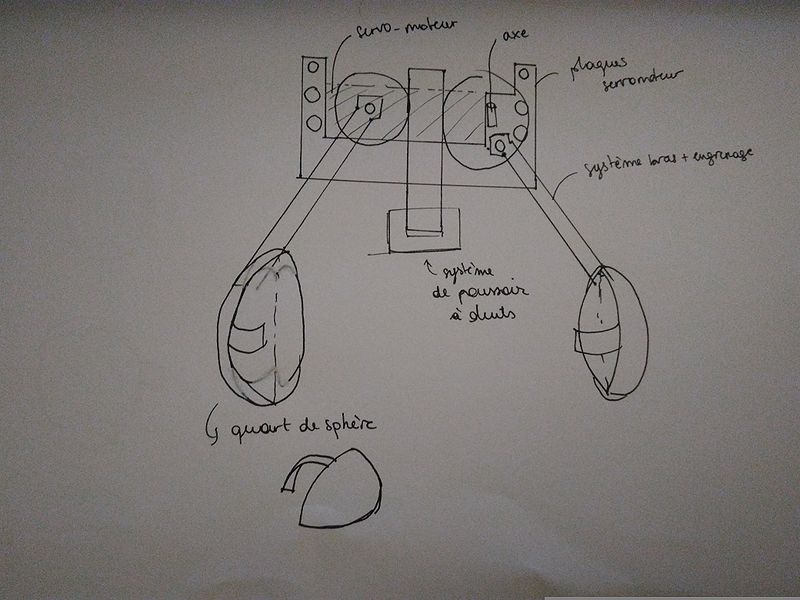 servo-moteur
axe
plaques
servomoteur
système bras + engrenage
système
de poussoir
à dents
quart de sphère